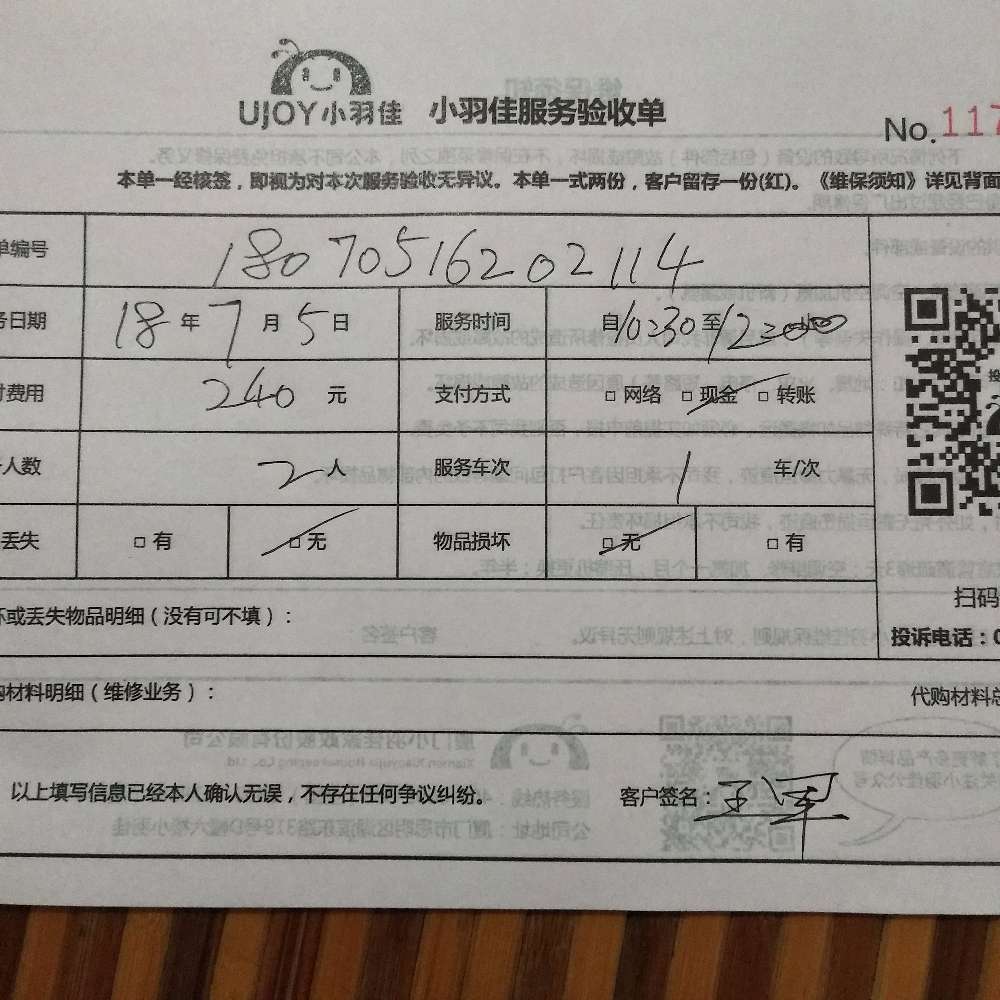 UJOY小羽佳 小羽佳服务验收单
No.117
本单一经核签，即视为对本次服务验收无异议。本单一式两份，客户留存一份(红)。《维保须知》详见背面
单编号 18070516202114
务日期 18年7月5日 服务时间 自10230至12:30
付费用 240元 支付方式 □网络 □现金 □转账
人数 2人 服务车次 1车/次
丢失 □有 □无 物品损坏 □无 □有
坏或丢失物品明细（没有可不填）：
扫码
投诉电话：0
购材料明细（维修业务）： 代购材料总
以上填写信息已经本人确认无误，不存在任何争议纠纷。 客户签名：王军